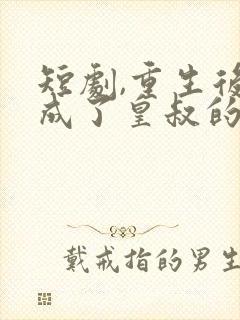 短劇,重生後
成了皇叔的
戴戒指的男生